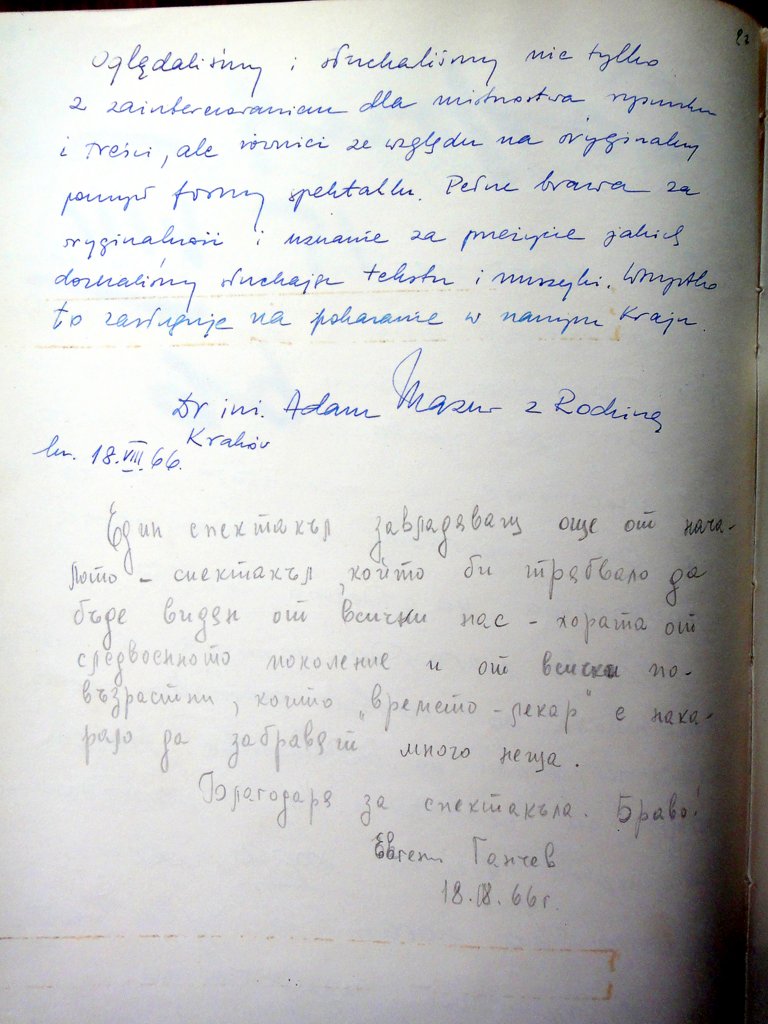 Oglądaliśmy i słuchaliśmy nie tylko
z zainteresowaniem dla mistrzostwa rysunku
i treści, ale również ze względu na oryginalny
pomysł formy spektaklu. Pełne brawa za
oryginalność i uznanie za przeżycie jakich
doznaliśmy słuchając tekstu i muzyki. Wszystko
to zasługuje na pokazanie w naszym Kraju.
Dr inż. Adam Mazur z Rodziną
Kraków
18.VIII.66.
Един спектакъл завладяващ още от нача-
лото - спектакъл, който би трябвало да
бъде видян от всички нас - хората от
следвоенното поколение и от всички по-
възрастни, които „времето - лекар" е нака-
рало да забравят много неща.
Благодаря за спектакъла. Браво!
Евгени Ганчев
66г.